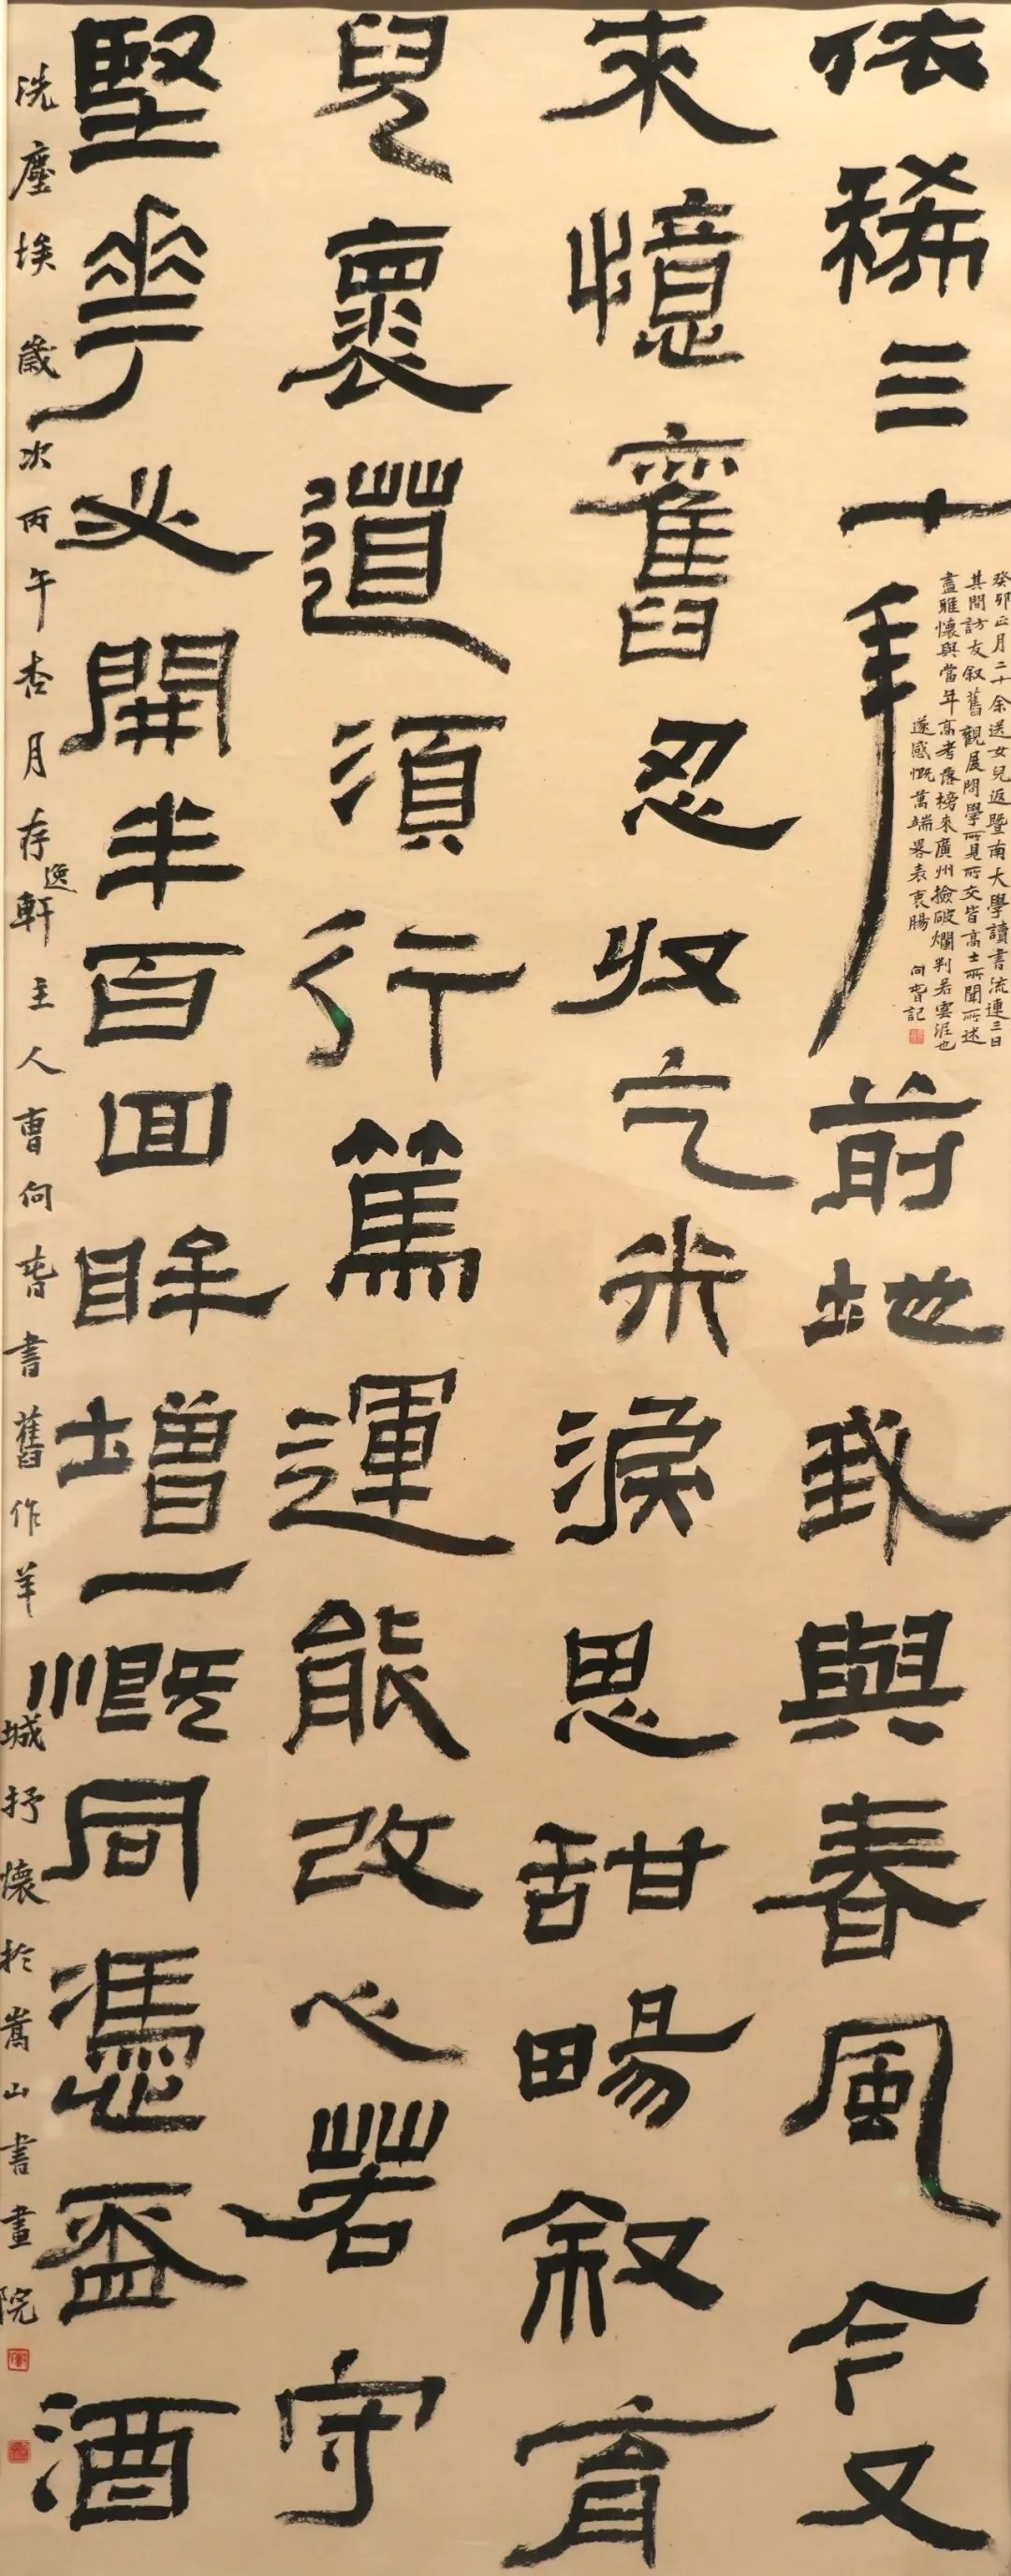 依稀三十年前地我與春風今又
來憶舊忍收乞米淚思甜暢叙育
兒褱道須行篤運能改心若守
堅華必開半百回眸增一慨同憑盃酒
洗塵埃 歲次丙午杏月存逸軒主人曹向旾書舊作羊城抒懷於嵩山書畫院
癸卯正月二十余送女兒返暨南大學讀書流連三日
其間訪友叙舊觀展問學所見所交皆高士所聞所述
盡雅懷與當年高考落榜來廣州撿破爛判若雲泥也
遂感慨萬端畧表衷腸 向旾記